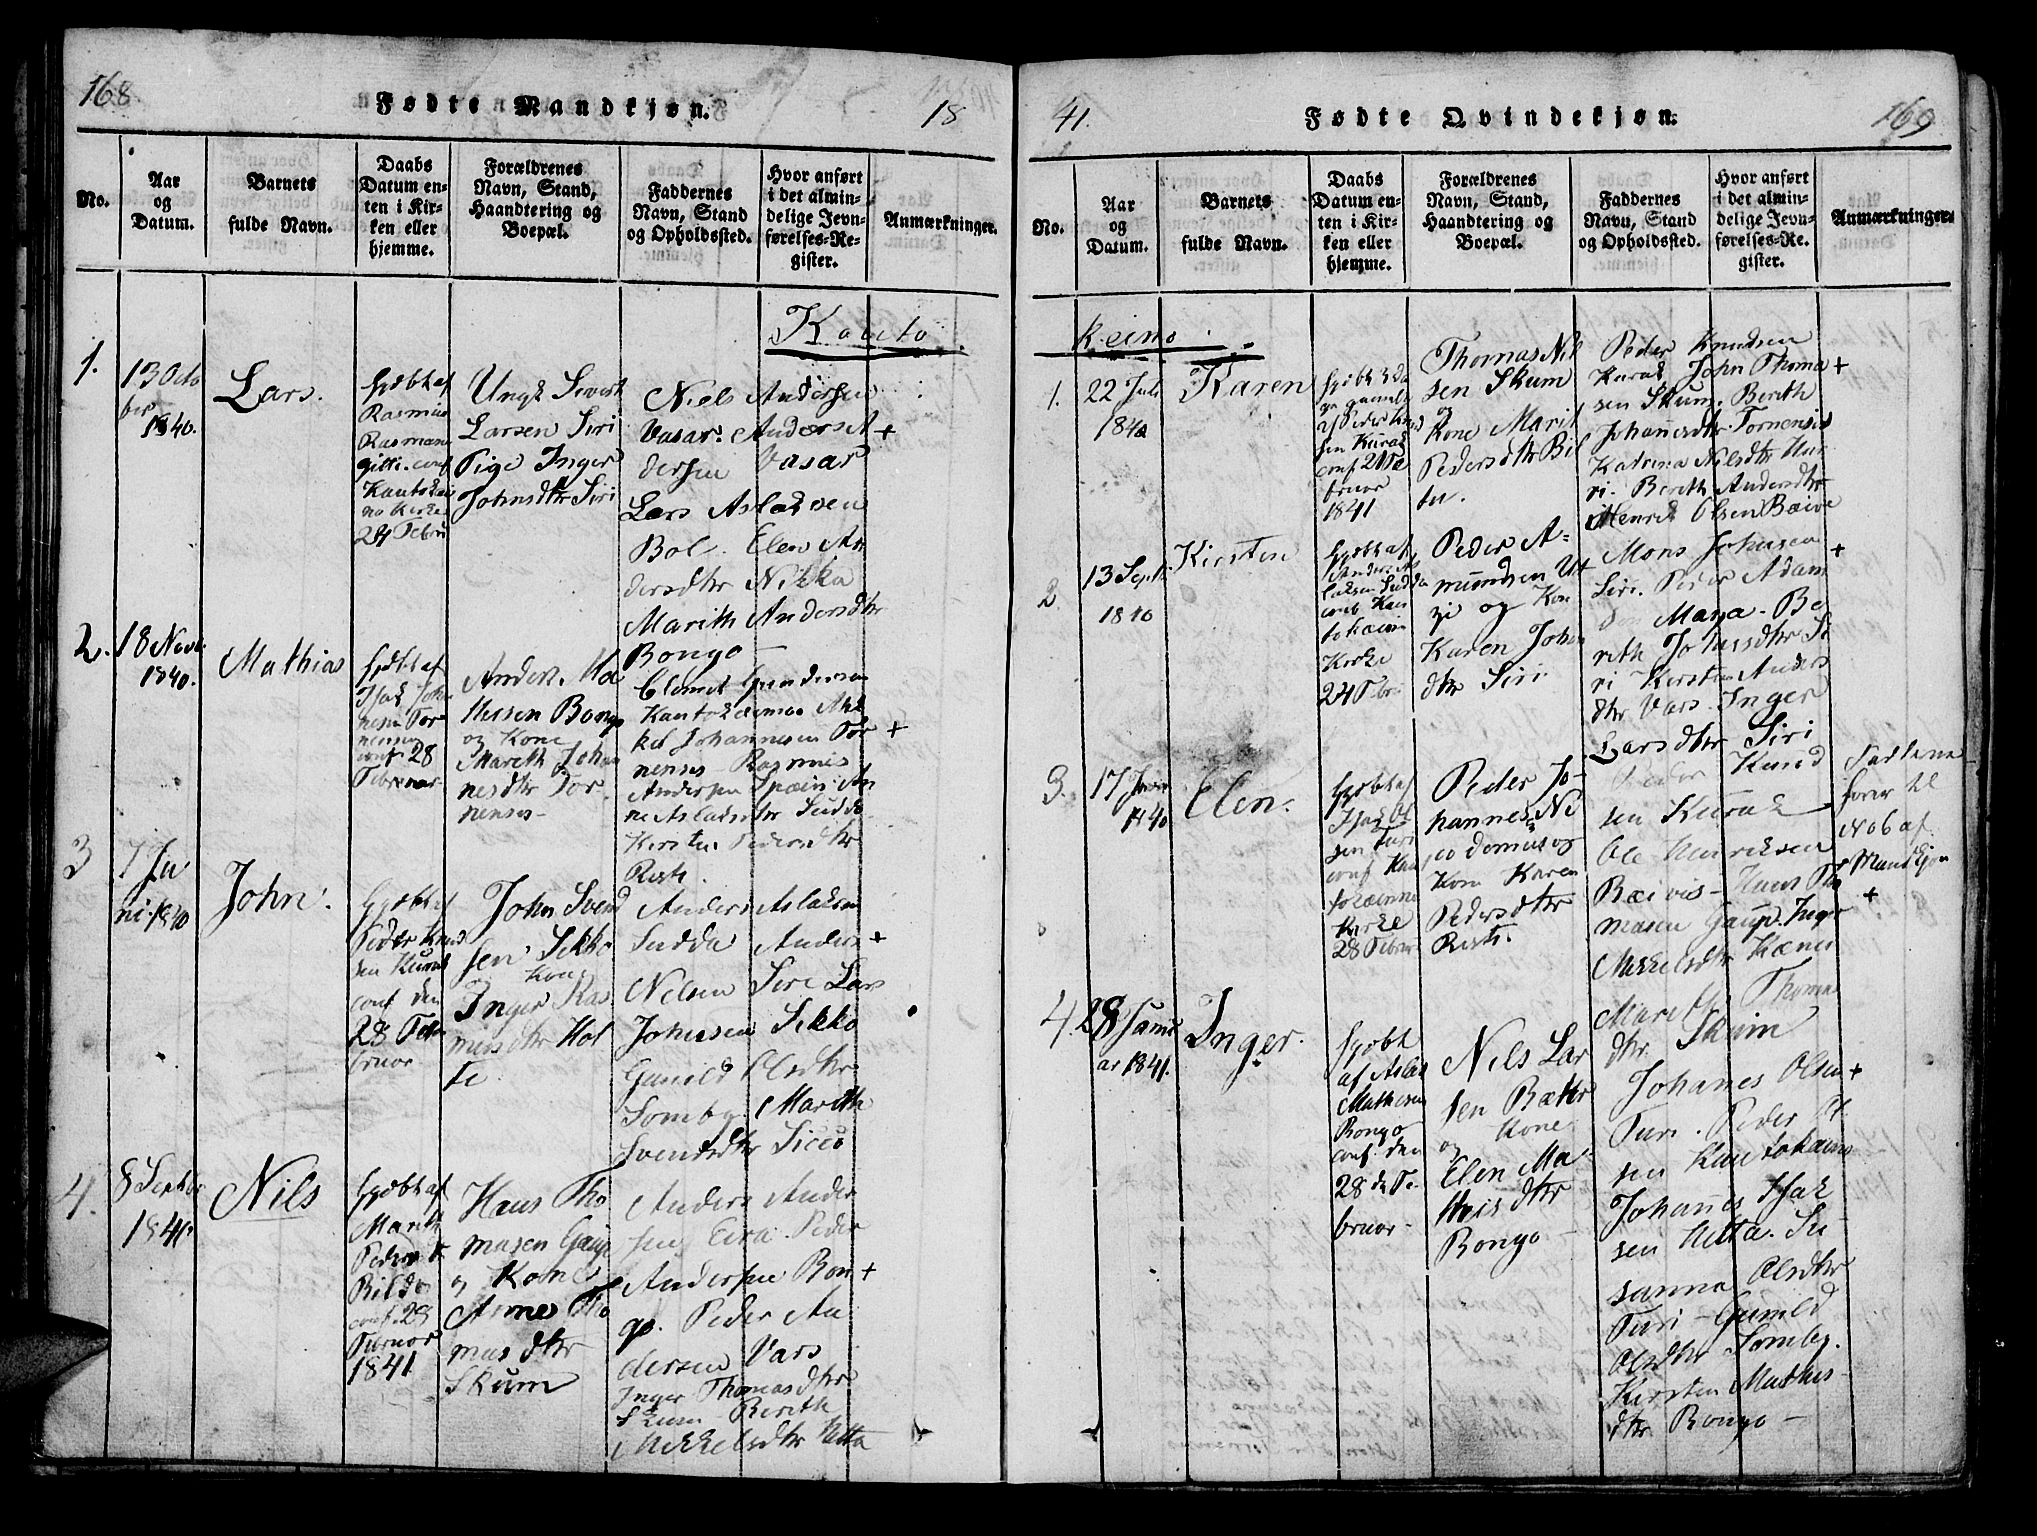 168.
Fødte Mandkjøn.
18
No.
Aar
og
Datum.
Barnets
fulde Navn.
Daabs
Datum en-
ten i Kir-
ken eller
hjemme.
Forældrenes
Navn, Stand,
Haandtering og
Boepæl.
Faddernes
Navn, Stand
og Opholdssted.
Hvor anført
i det almin-
delige Jevn-
førelses-Re-
gister.
Anmærkninger.
Kauto
1.
13 Octo
ber
1840.
Lars.
Hjdøbt af
Rasmus
Rasmus
conf
Kautokei
no Kirke
24 Febru
Ungk Sivert
Larsen Siri
Pige Inger
Johnsdtr Siri
Niels Andersen
Vasar. Anders A +
dersen Vasar
Lars Aslaksen
Bol. Elen An
dersdtr Nikka
Marith Andersdtr
Bongo —
2.
18 Novbr
1840.
Mathias
Hjdøbt af
Isak Joha
nesen Tor
nensis
conf 28
Februar
Anders Ma
thissen Bongo
og Kone
Mareth Johan
nesdtr Tor
nensis-
Clemet Gundersen
Kautokeino
kel Johannesen Tor +
nensis - Rasmus
Andersen Spein An
ne Aslaksdtr Sudda
Kirsten Pedersdtr
Rist.
3
7 Ju
ni 1840
John.
Hjdøbt af
Peder Knud
sen Kurak
conf den
28 Feb
bruar
John Svend
sen Sikko
Kone
Inger Ras
musdtr Hot
te
Anders Aslaksen
Sudda Anders +
Nielsen Siri Lars
Johnsen Sikko
Gunild Olsdtr
Somby. Marith
Svendsdtr Sicco
4.
8 Septbr
1841.
Nils
Hjdøbt af
Marith
Peders d.
Bildo
conf. 28
Februar
1841
Hans Tho
masen Gaup
og Kone
Anne Tho
mas dtr
Skum
Anders Ander
sen Eira Peder
Andersen Bon +
go. Peder An
dersen Vars
Inger Thomasdtr
Skum - Berith
Mikkelsdtr Hætta
41.
Fødte Qvindekjøn.
169
No.
Aar
og
Datum.
Barnets
fulde Navn.
Daabs
Datum en-
ten i Kir-
ken eller
hjemme.
Forældrenes
Navn, Stand,
Haandtering og
Boepæl.
Faddernes
Navn, Stand
og Opholdssted.
Hvor anført
i det almin-
delige Jevn-
førelses-Re-
gister.
Anmærkninger.
keino
1.
22 Juli
1840
Karen
Hjdøbt 3 Da
ge gammel
af Peder Knud
sen Kurak
conf 21 Fe
bruar
1841
Thomas Nil
sen Skum
og
Kone Marit
Pedersdtr Bil
tu.
Peder Knudsen
Kurak John Thoma +
sen Skum. Berith
Johanesdtr Tornensis
Katrina Nilsdtr Hur
ri. Berith Andersdtr
Henrik Olsen Bæive
2
13 Septb.
1840
Kirsten
Hjdøbt af
Anders As
laksen Sudda
conf Kau
tokein
Kirke
24 Febr
Peder A=
mundsen Ut
zi og Kone
Karen Johan
dtr Siri
Mons Johnsen +
Siri. Peder Adam
sen Manja. Be
reth Johansdtr Si
ri Kirsten Anders
dtr Vars. Inger
Larsdtr Siri
3.
17 Janr
1840
Elen.
Hjdøbt af
Isak Ol
sen Turi
conf Kau
tokeino
Kirke
28 Febr
Peder Jo-
hannes Ni
codemus og
Kone Karen
Pedersdtr
Rist.
Peder Knud
sen Kurak
Ole Henriksen
Bæivis - Hans Tho
masen Gaup. Inger
Mikkelsdtr Kæmi
Mareth Thoma
dtr Skum
hører til
No 6 af
Mandkjøn
+
4.
28 Janu
ar 1841.
Inger.
Hjdøbt
af Aslak
Mathisen
Bongo
conf. den
28 de Fe
bruar -
Nils Lar
sen Bætter
og Kone
Elen Ma
thisdtr
Bongo —
Johannes Olsen +
Turi. Peder Ol
sen Kautokeino
Johannes Isak
sen Hætta. Su
sanna Olsdtr
Turi - Gunild
Olsdtr Somby.
Kirsten Mathis-
dtr Bongo —